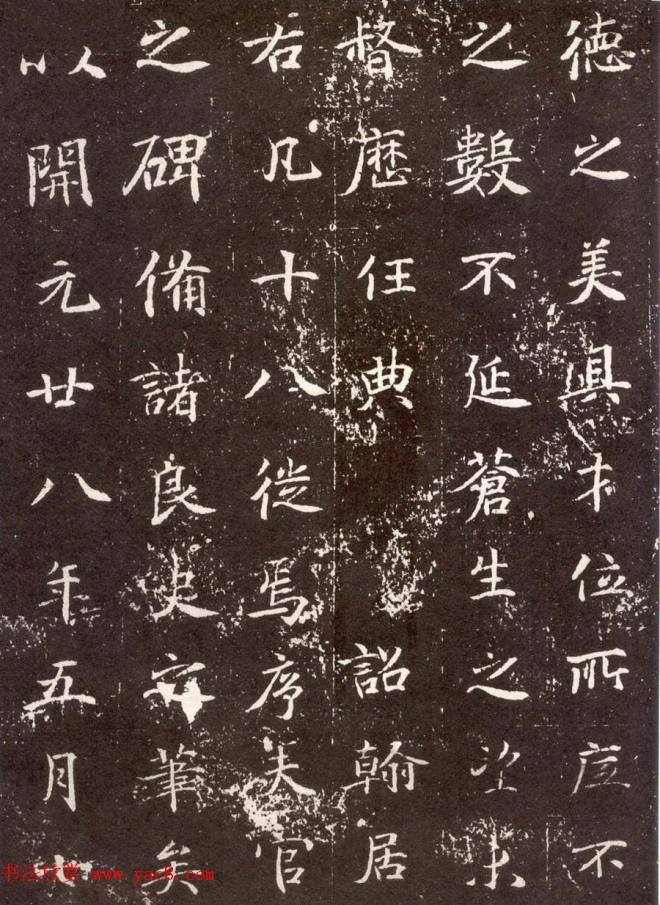 徳之美具才位所不
之數不延蒼生之望未
督歷任典詔翰居
右凡十八徙焉序夫官
之碑備諸良史之筆矣
以開元廿八年五月
书法欣赏 www.yac8.com